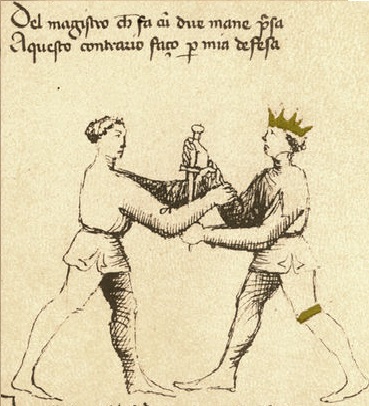 Del magistro ch fa cū due mane p̄sa
Aquesto contrario faço ꝑ mia defesa